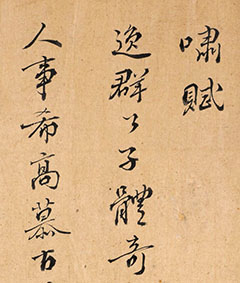 嘯賦
逸群公子體奇
人事希高慕古